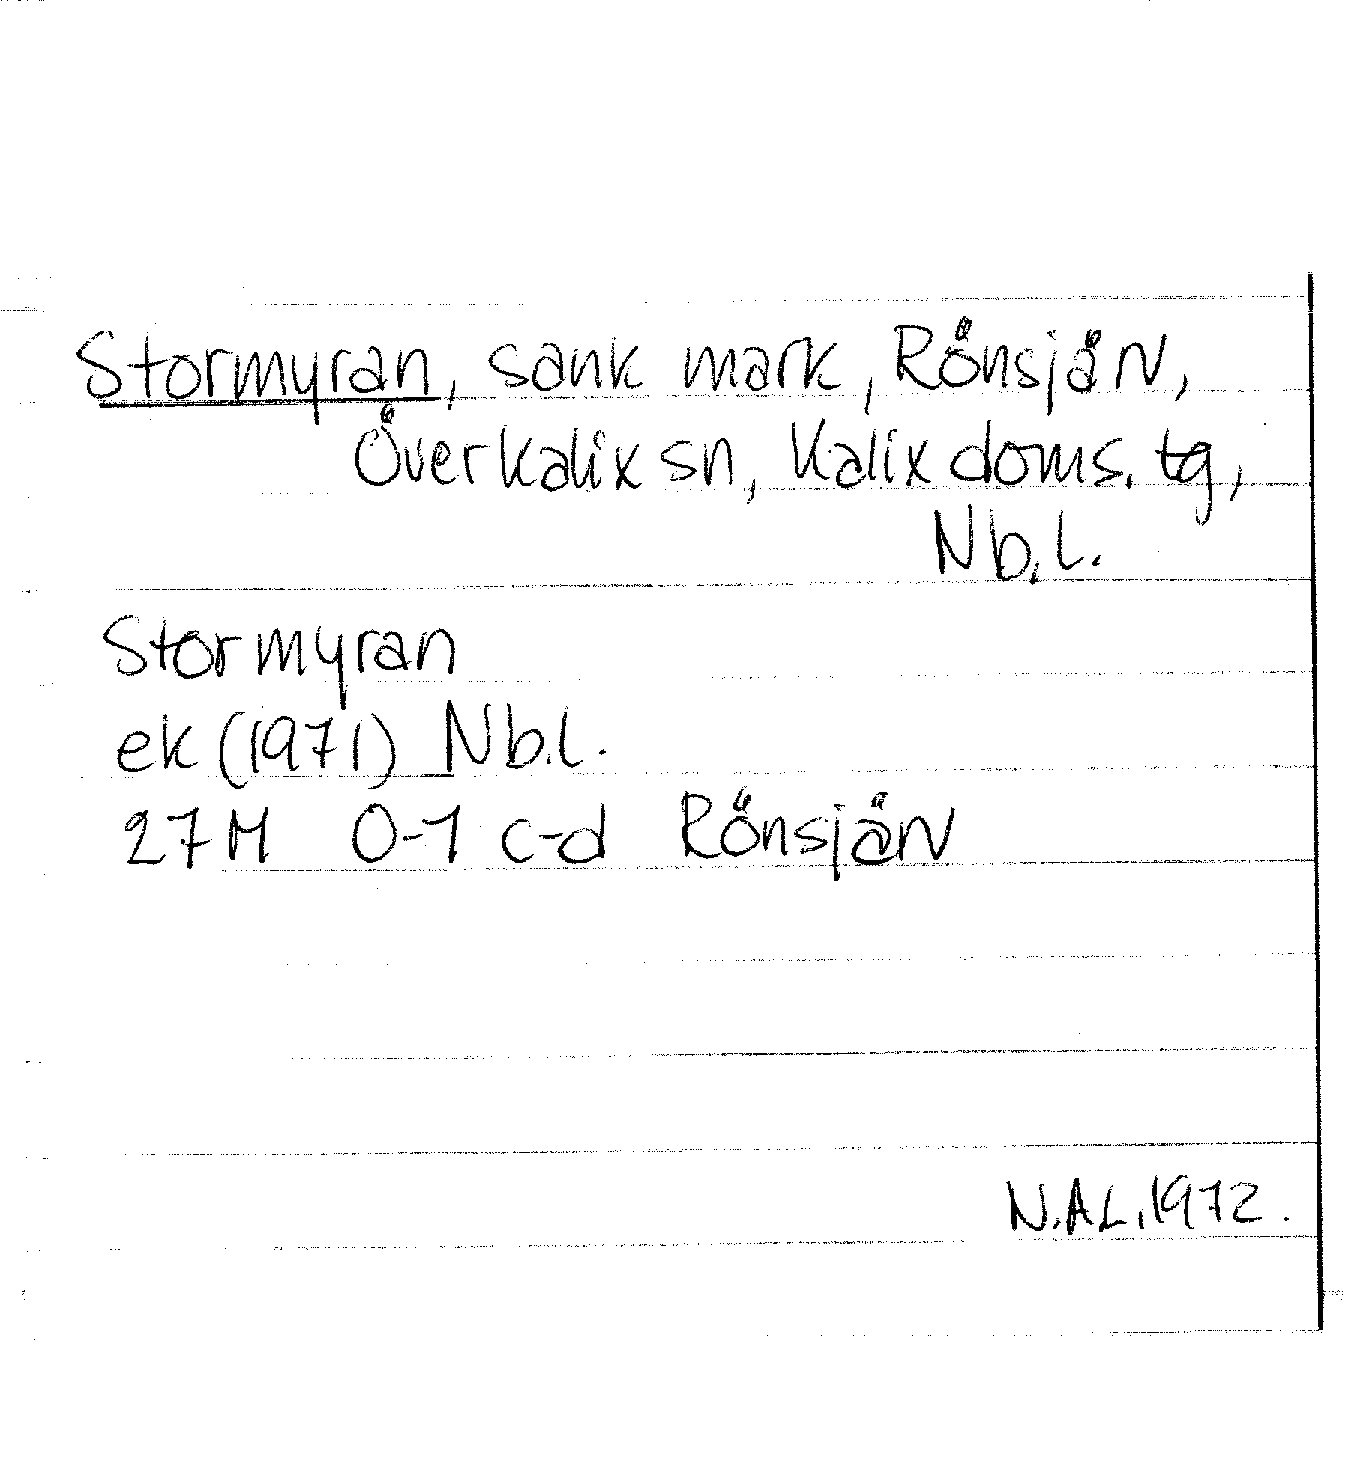 Stormyran, sank mark, Rönsjärv,
Överkalix sn, Kalix doms. tg,
Nb.l.
Stormyran
ek (1971) Nb.l.
27M 0-1 c-d Rönsjärv
N.A.L. 1972.